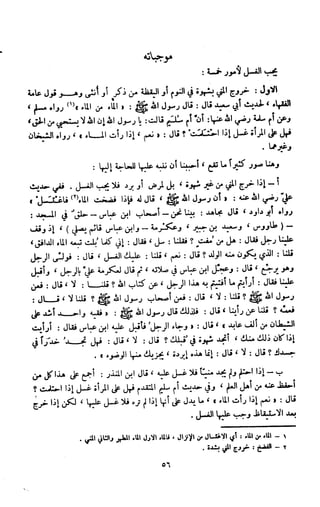 موجباته
يجب الغسل لأمور خمسة :
الأول : خروج المني بشهوة في النوم أو اليقظة من ذكر أو أنثى وهو قول عامة
الفقهاء ، لحديث أبي سعيد قال : قال رسول الله ﷺ : « الماء من الماء »(١) رواه مسلم ،
وعن أم سلمة رضي الله عنها : أن أم سليم قالت : يا رسول الله إن الله لا يستحيي من الحق ،
فهل على المرأة غسل إذا احتلمت ؟ قال : « نعم ، إذا رأت الماء » ، رواه الشيخان
وغيرهما .
وهنا صور كثيراً ما تقع ، أحببنا أن ننبه عليها للحاجة إليها :
أ - إذا خرج المني من غير شهوة ، بل لمرض أو برد فلا يجب الغسل . ففي حديث
علي رضي الله عنه : « أن رسول الله ﷺ ، قال له فإذا فضخت الماء(٢) فاغتسل »
رواه أبو داود ، قال مجاهد : بينا نحن - أصحاب ابن عباس - حلق في المسجد :
- ( طاووس ، وسعيد بن جبير ، وعكرمة - وابن عباس قائم يصلي ) ، إذ وقف
علينا رجل فقال : هل من مفت ؟ فقلنا : سل ، فقال : إني كلما بلت تبعه الماء الدافق ،
قلنا : الذي يكون منه الولد ؟ قال : نعم ، قلنا : عليك الغسل ، قال : فولى الرجل
وهو يرجع ، قال : وعجل ابن عباس في صلاته ، ثم قال لعكرمة علي بالرجل ، وأقبل
علينا فقال : أرأيتم ما أفتيتم به هذا الرجل ، عن كتاب الله ؟ قلنا : لا ، قال : فعن
رسول الله ﷺ ؟ قلنا : لا ، قال : فعن أصحاب رسول الله ﷺ ؟ قلنا لا ، قال :
فعمه ؟ قلنا عن رأينا ، قال : فلذلك قال رسول الله ﷺ : « فقيه واحد أشد على
الشيطان من ألف عابد » ، قال : « وجاء الرجل فأقبل عليه ابن عباس فقال : أرأيت
إذا كان ذلك منك ، أتجد شهوة في قبلك ؟ قال : لا ، قال : فهل تجد خدراً في
جسدك ؟ قال : لا ، قال : إنما هذه إبردة ، يجزيك منها الوضوء » .
ب - إذا احتلم ولم يجد منياً فلا غسل عليه ، قال ابن المنذر : أجمع على هذا كل من
أحفظ عنه من أهل العلم ، وفي حديث أم سليم المتقدم فهل على المرأة غسل إذا احتلمت ؟
قال : « نعم إذا رأت الماء » ، ما يدل على أنها إذا لم تره فلا غسل عليها ، لكن إذا خرج
بعد الاستيقاظ وجب عليها الغسل .
١ - الماء من الماء : أي الاغتسال من الإنزال ، فالماء الأول الماء المطهر والثاني المني .
٢ - الفضخ : خروج المني بشدة .
٥٦